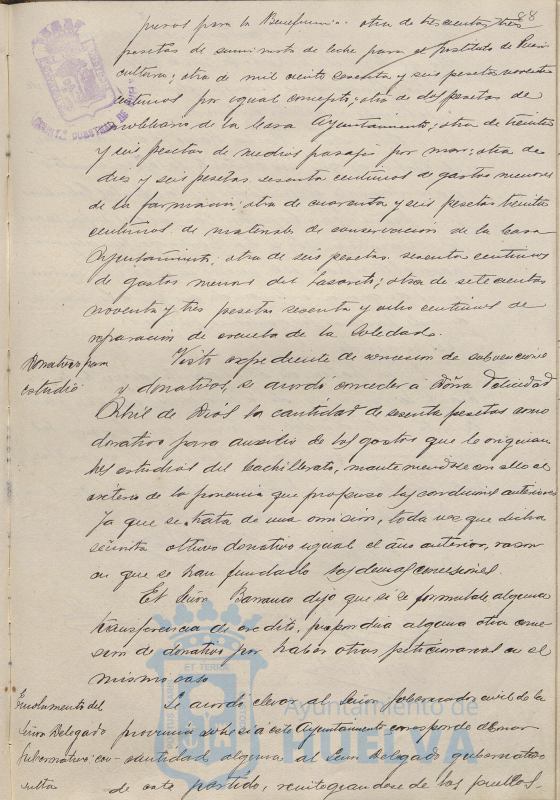 88
pesos para la Beneficencia; otra de trescientas tres
pesetas de suministro de leche para el Instituto de Pueri
cultura; otra de mil ciento sesenta y seis pesetas noventa
centimos por igual concepto; otra de dos pesetas de
mobiliario de la Casa Ayuntamiento; otra de treinta
y seis pesetas de medios pasajes por mar; otra de
diez y seis pesetas sesenta centimos de gastos menores
de la farmacia; otra de cuarenta y seis pesetas treinta
centimos de materiales de conservacion de la Casa
Ayuntamiento; otra de seis pesetas sesenta centimos
de gastos menores del Lazareto; otra de setecientas
noventa y tres pesetas sesenta y ocho centimos de
reparacion de escuela de la Soledad.
Donativo para
estudio
Visto expediente de concesion de subvenciones
y donativos, se acordó conceder a Doña Felicidad
de Dios la cantidad de sesenta pesetas como
donativo para auxilio de los gastos que le originan
los estudios del Bachillerato, manteniendose con ello el
criterio de la ponencia que propuso las condiciones anteriores
ya que se trata de una omision, toda vez que dicha
señorita obtuvo donativo igual el año anterior, razon
en que se han fundado las demas concesiones.
El Señor Barranco dijo que si se formulase alguna
transferencia de credito, propondria alguna otra conce
sion de donativo por haber otras peticionarias en el
mismo caso
del
Señor Delegado
Gubernativo: con-
sulta
Se acordó elevar al Señor Gobernador civil de la
provincia si a este Ayuntamiento corresponde abonar
cantidad alguna al Señor Delegado gubernativo
de este partido, reintegrandose de los pueblos
Ayuntamiento de
HUELVA